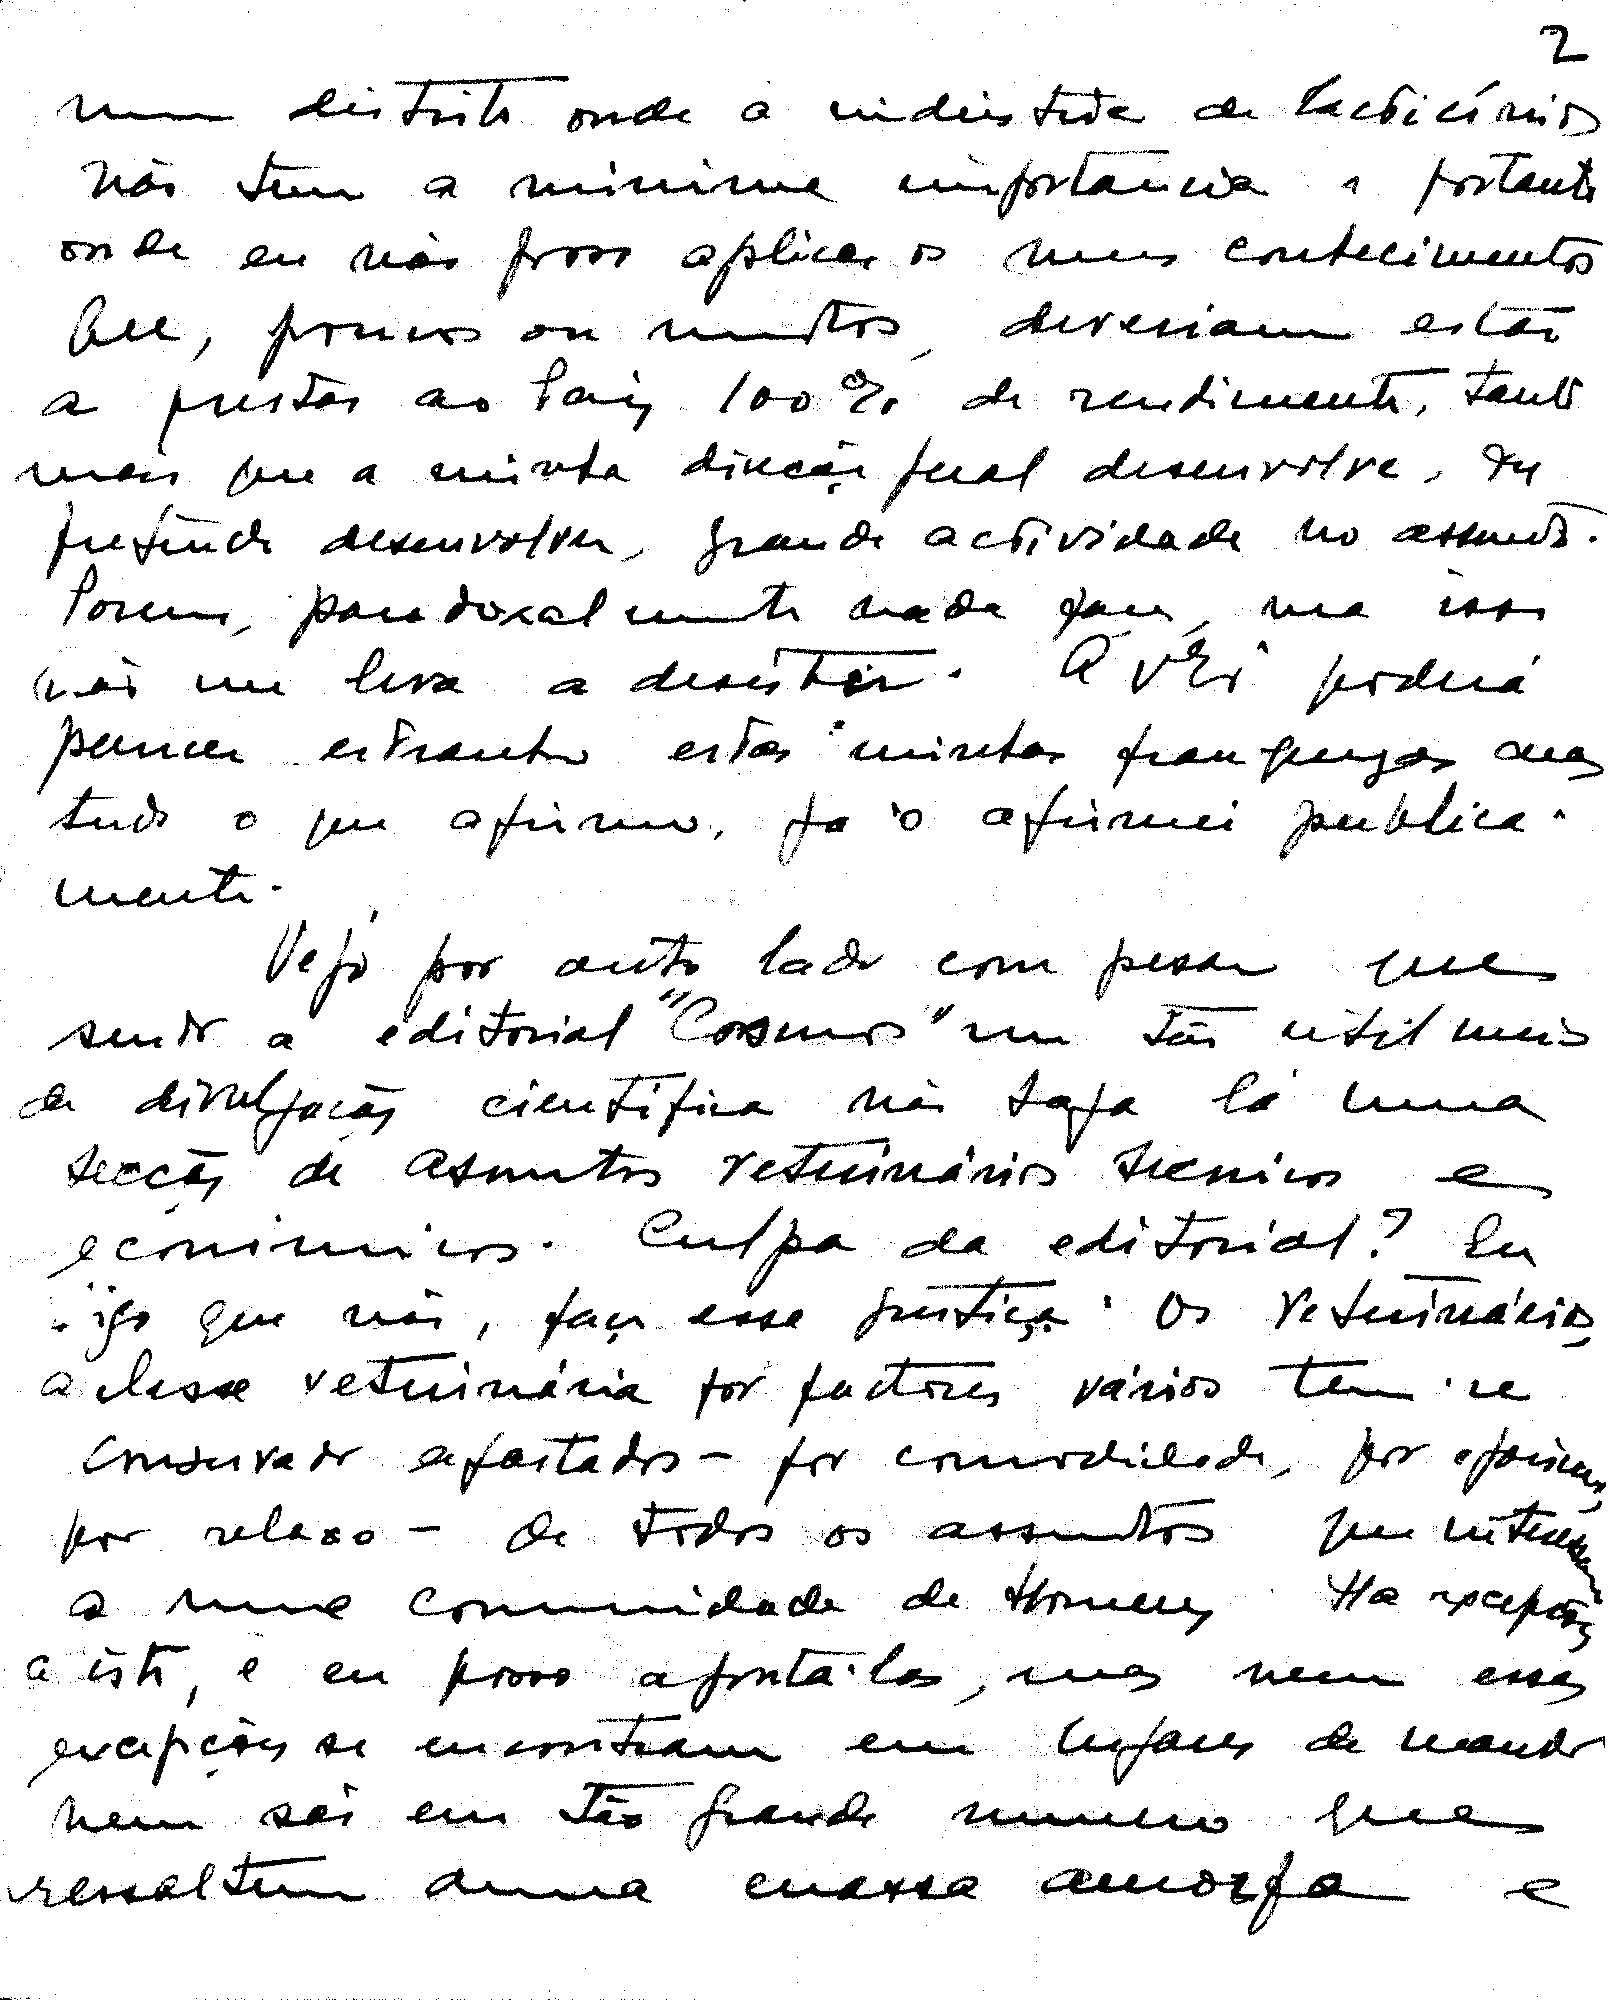 2
num distrito onde a indústria de lacticínios
não tem a minima importancia e portanto
onde eu não posso aplicar os meus conhecimentos
que, poucos ou muitos, deveriam estar
a prestar ao Paiz 100% de rendimento, tanto
mais que a minha direcção geral desenvolve, ou
pretende desenvolver, grande actividade no assunto.
Porem, paradoxalmente nada faz, mas isso
não me leva a desistir. A você poderá
parecer estranho estas minhas franquezas mas
tudo o que afirmo, ja o afirmei publica-
mente.
Vejo por outro lado com pesar que
sendo a editorial "Cosmos" um tão util meio
de divulgação cientifica não haja lá uma
secção de asuntos veterinários tecnicos e
económicos. Culpa da editorial? Eu
digo que não, faço essa justiça. Os veterinários,
a classe veterinária por factores vários tem-se
conservado afastados - por comodidade,
por relaxo - de todos os assuntos que interessam
a uma comunidade de Homens. Ha excepções
a isto, e eu posso aponta-las, mas nem essas
excepções se encontram em lugares de mando
nem são em tão grande numero que
ressaltem duma massa amorfa e